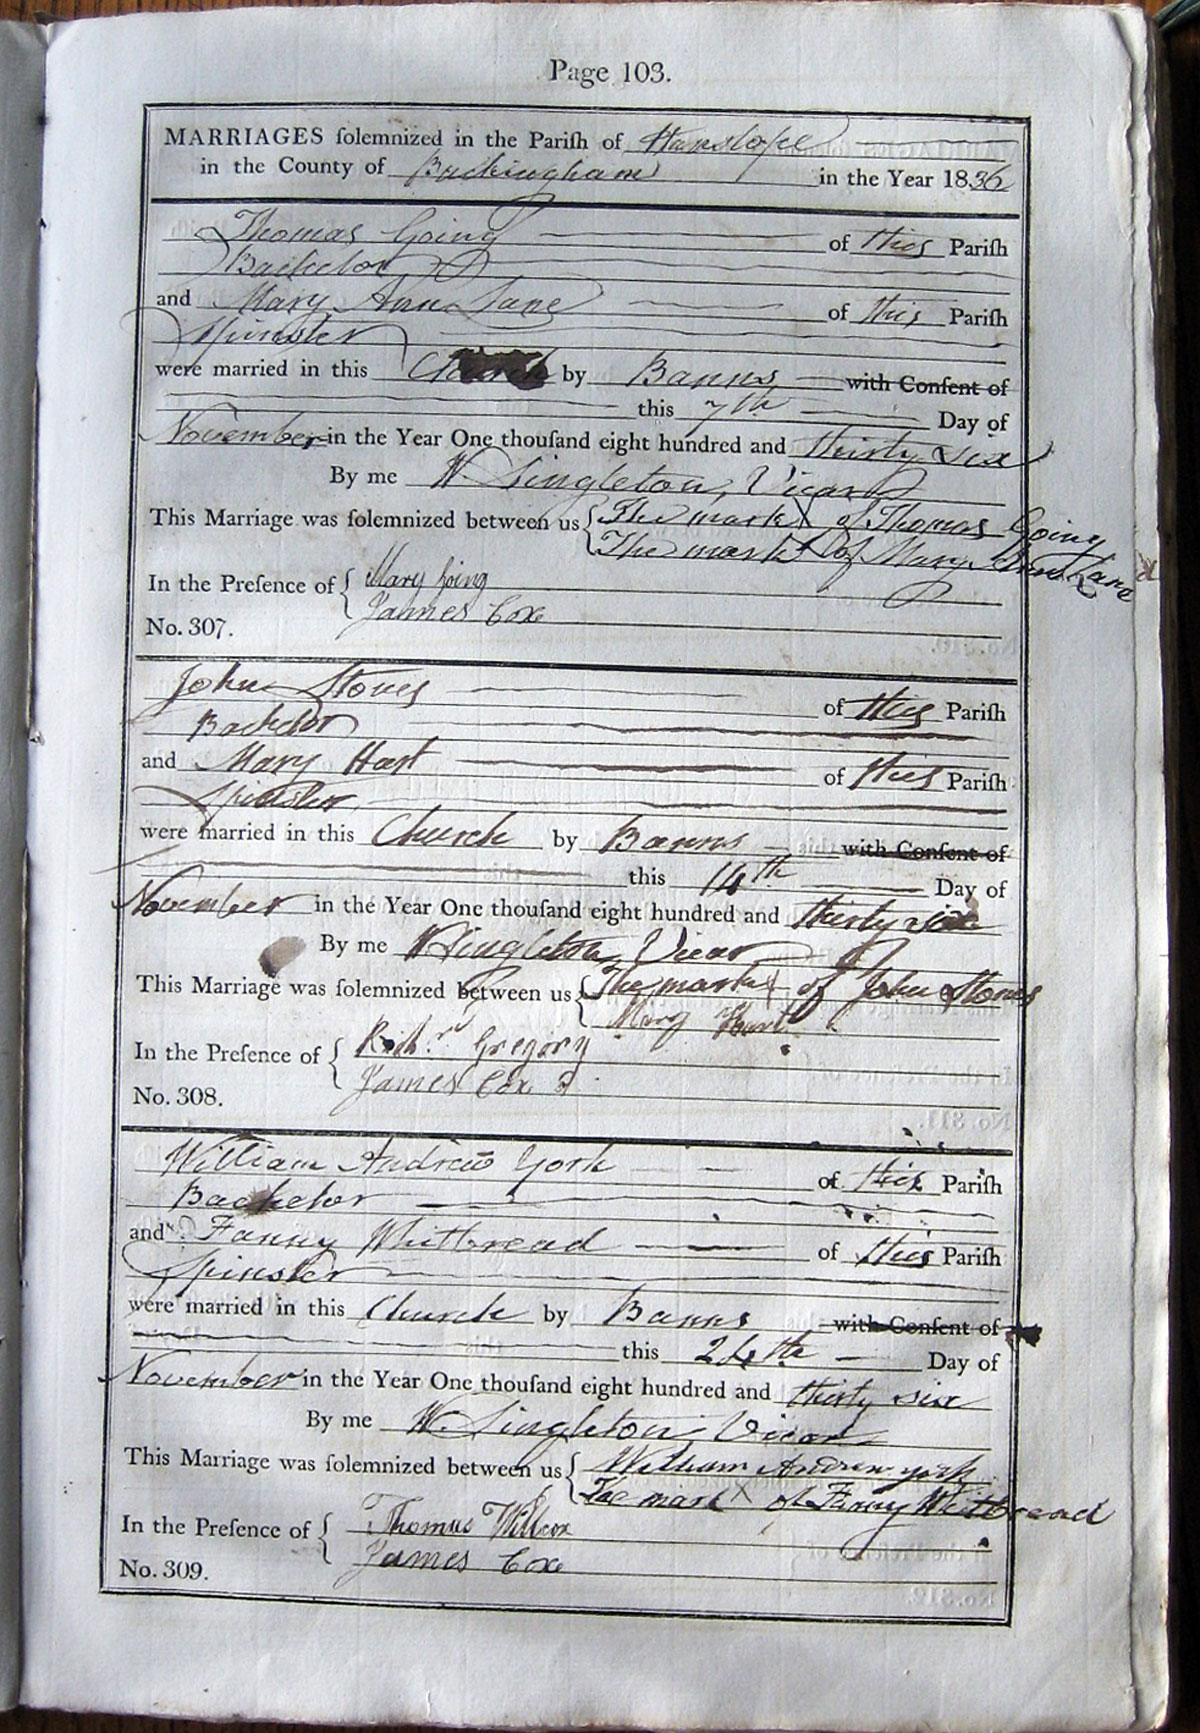 Page 103.
MARRIAGES ſolemnized in the Pariſh of Hanslope
in the County of Buckingham in the Year 1836
Thomas Going of this Pariſh
Bachelor
and Mary Ann Lane of this Pariſh
Spinster
were married in this Church by Banns with Conſent of
this 7th Day of
November in the Year One thouſand eight hundred and thirty six
By me W Singleton, Vicar
This Marriage was ſolemnized between us { The mark X of Thomas Going
The mark X of Mary Ann Lane
In the Preſence of { Mary Going
James Cox
No. 307.
John Stones of this Pariſh
Bachelor
and Mary Hart of this Pariſh
Spinster
were married in this Church by Banns with Conſent of
this 14th Day of
November in the Year One thouſand eight hundred and thirty six
By me W Singleton Vicar
This Marriage was ſolemnized between us { The mark X of John Stones
Mary Hart
In the Preſence of { Richrd Gregory
James Cox
No. 308.
William Andrew York of this Pariſh
Bachelor
and Fanny Whitbread of this Pariſh
Spinster
were married in this Church by Banns with Conſent of
this 24th Day of
November in the Year One thouſand eight hundred and thirty six
By me W. Singleton Vicar
This Marriage was ſolemnized between us { William Andrew york
The mark X of Fanny Whitbread
In the Preſence of { Thomas Willcox
James Cox
No. 309.